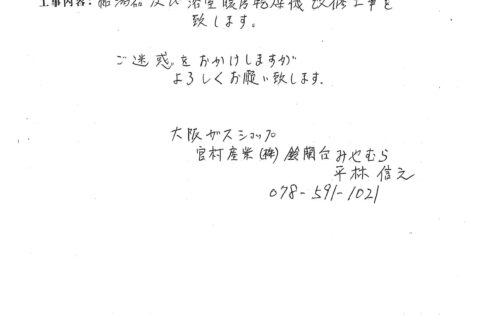 工事内容: 給湯器 及び 浴室暖房乾燥機 改修工事を
致します。
ご迷惑をおかけしますが
よろしくお願い致します.
大阪ガスショップ
宮村産業(株) 鈴蘭台みやむら
平林 信之
078-591-1021